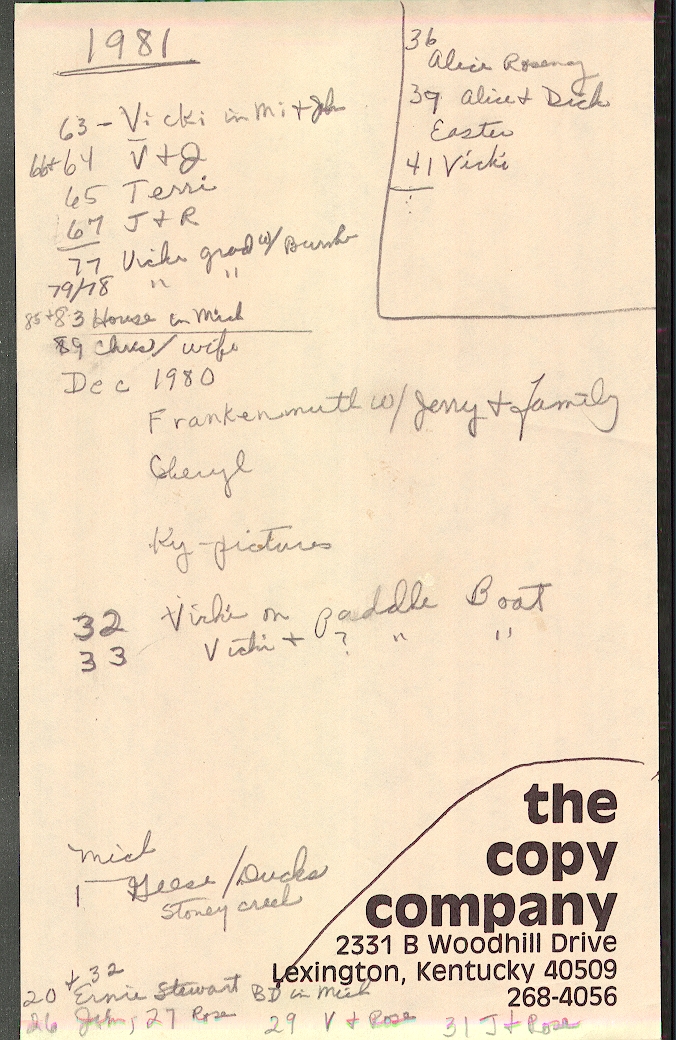 1981
63 - Vicki in Mi + John
66+64 V + J
65 Terri
67 J + R
77 Vicki grad w/
79/78 " "
85+83 House in Mich
89 Chris/wife
Dec 1980
Frankenmuth w/ Jerry + family
Cheryl
Ky-pictures
32 Vicki on Paddle Boat
33 Vicki + ? " "
36
Alice
39 Alice + Dick
Easter
41 Vicki
Mich
1 Geese/Ducks
Stoney creek
20 + 32
Ernie Stewart BD in Mich
26 John, 27 Rose 29 V + Rose 31 J + Rose
the
copy
company
2331 B Woodhill Drive
Lexington, Kentucky 40509
268-4056